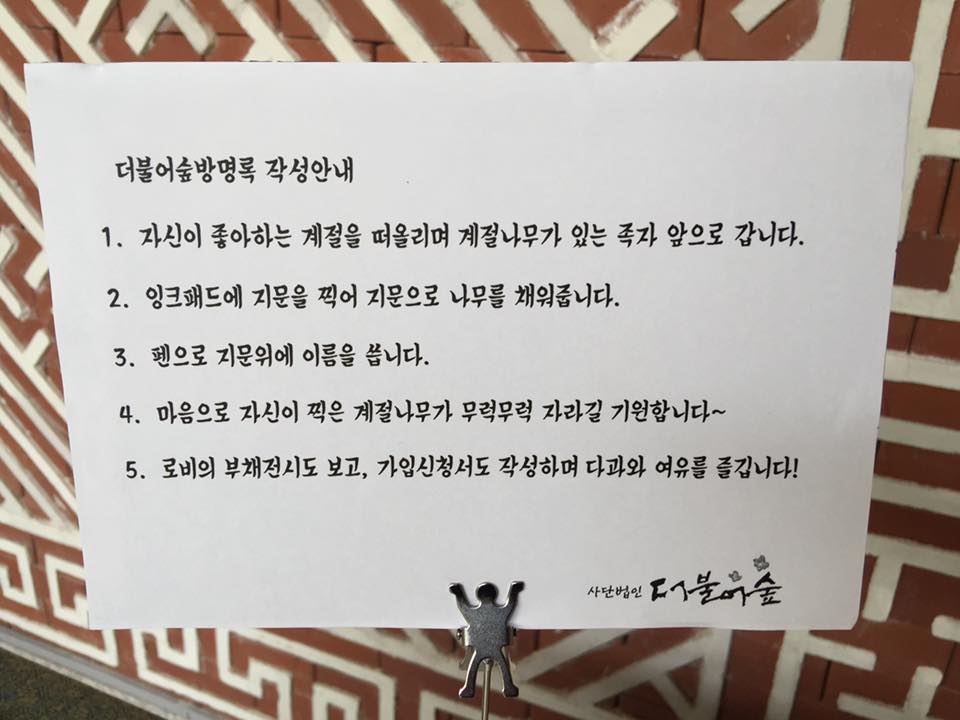 더불어숲방명록 작성안내
1. 자신이 좋아하는 계절을 떠올리며 계절나무가 있는 족자 앞으로 갑니다.
2. 잉크패드에 지문을 찍어 지문으로 나무를 채워줍니다.
3. 펜으로 지문위에 이름을 씁니다.
4. 마음으로 자신이 찍은 계절나무가 무럭무럭 자라길 기원합니다~
5. 로비의 부채전시도 보고, 가입신청서도 작성하며 다과와 여유를 즐깁니다!
사단법인 더불어숲